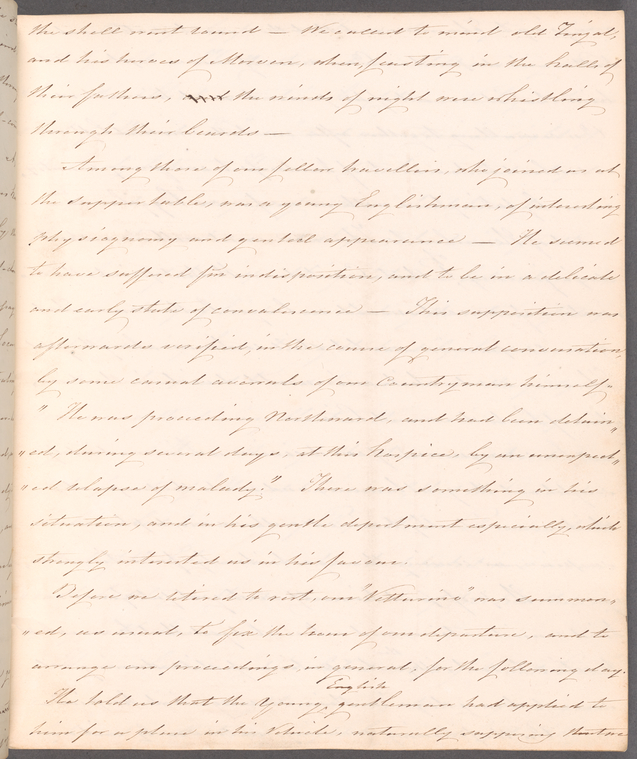 the shell went round — We called to mind old Fingal,
and his heroes of Morven, when, feasting in the halls of
their fathers, the winds of night were whistling
through their beards —
Among those of our fellow travellers, who joined us at
the supper table, was a young Englishman, of interesting
physiognomy and genteel appearance — He seemed
to have suffered from indisposition, and to be in a delicate
and early state of convalescence — This supposition was
afterwards verified, in the course of general conversation,
by some casual avowals of our Countryman himself—
" He was proceeding Northward, and had been detain"
"ed, during several days, at this hospice, by an unexpect"
"ed relapse of malady." There was something in his
situation, and in his gentle deportment especially, which
strongly interested us in his favour.
Before we retired to rest, our "Vetturino" was summon"
"ed, as usual, to fix the hour of our departure, and to
arrange our proceedings in general, for the following day.
English
He told us that the young gentleman had applied to
him for a place in his Vehicle, naturally supposing that we